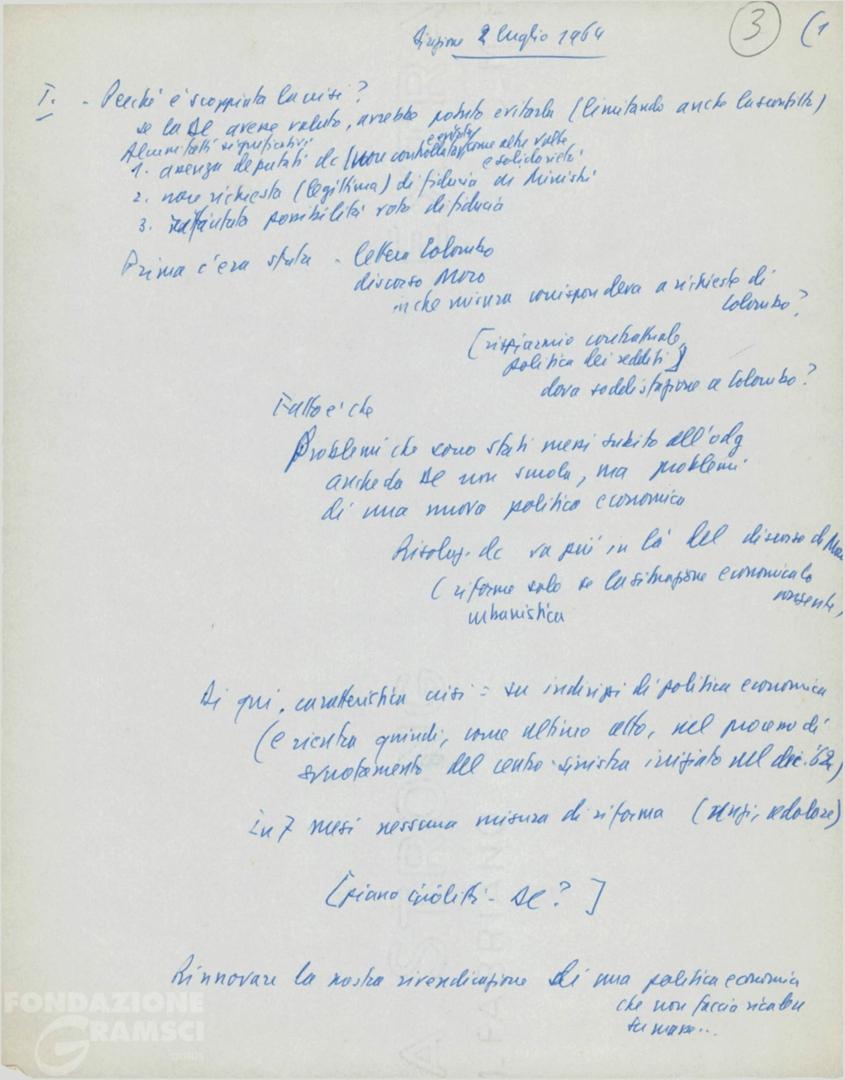 Direzione 2 luglio 1964
3 (1
I. - Perché è scoppiata la crisi?
se la DC avesse voluto, avrebbe potuto evitarla (limitando anche la sconfitta)
Alcuni fatti significativi
1. assenza deputati dc (non controllata come altre volte
e solidarietà
2. non richiesta (legittima) di fiducia di Ministri
3. possibilità voto di fiducia
Prima c'era stata - lettera Colombo
discorso Moro
in che misura corrispondeva a richieste di
Colombo?
[risparmio contrattuale,
politica dei redditi]
dava soddisfazione a Colombo?
Fatto è che
Problemi che sono stati messi subito all'odg
anche da DC non scuola, ma problemi
di una nuova politica economica
Risoluz. dc va più in là del discorso di Moro
(riforme solo se la situazione economica lo
consente,
urbanistica
Di qui, caratteristica crisi = su indirizzi di politica economica
(e rientra quindi, come ultimo atto, nel processo di
svuotamento del centro-sinistra iniziato nel dic. '62)
In 7 mesi nessuna misura di riforma (anzi,
[piano Giolitti - DC?]
Rinnovare la nostra rivendicazione di una politica economica
che non faccia ricadere
su masse...
FONDAZIONE
GRAMSCI